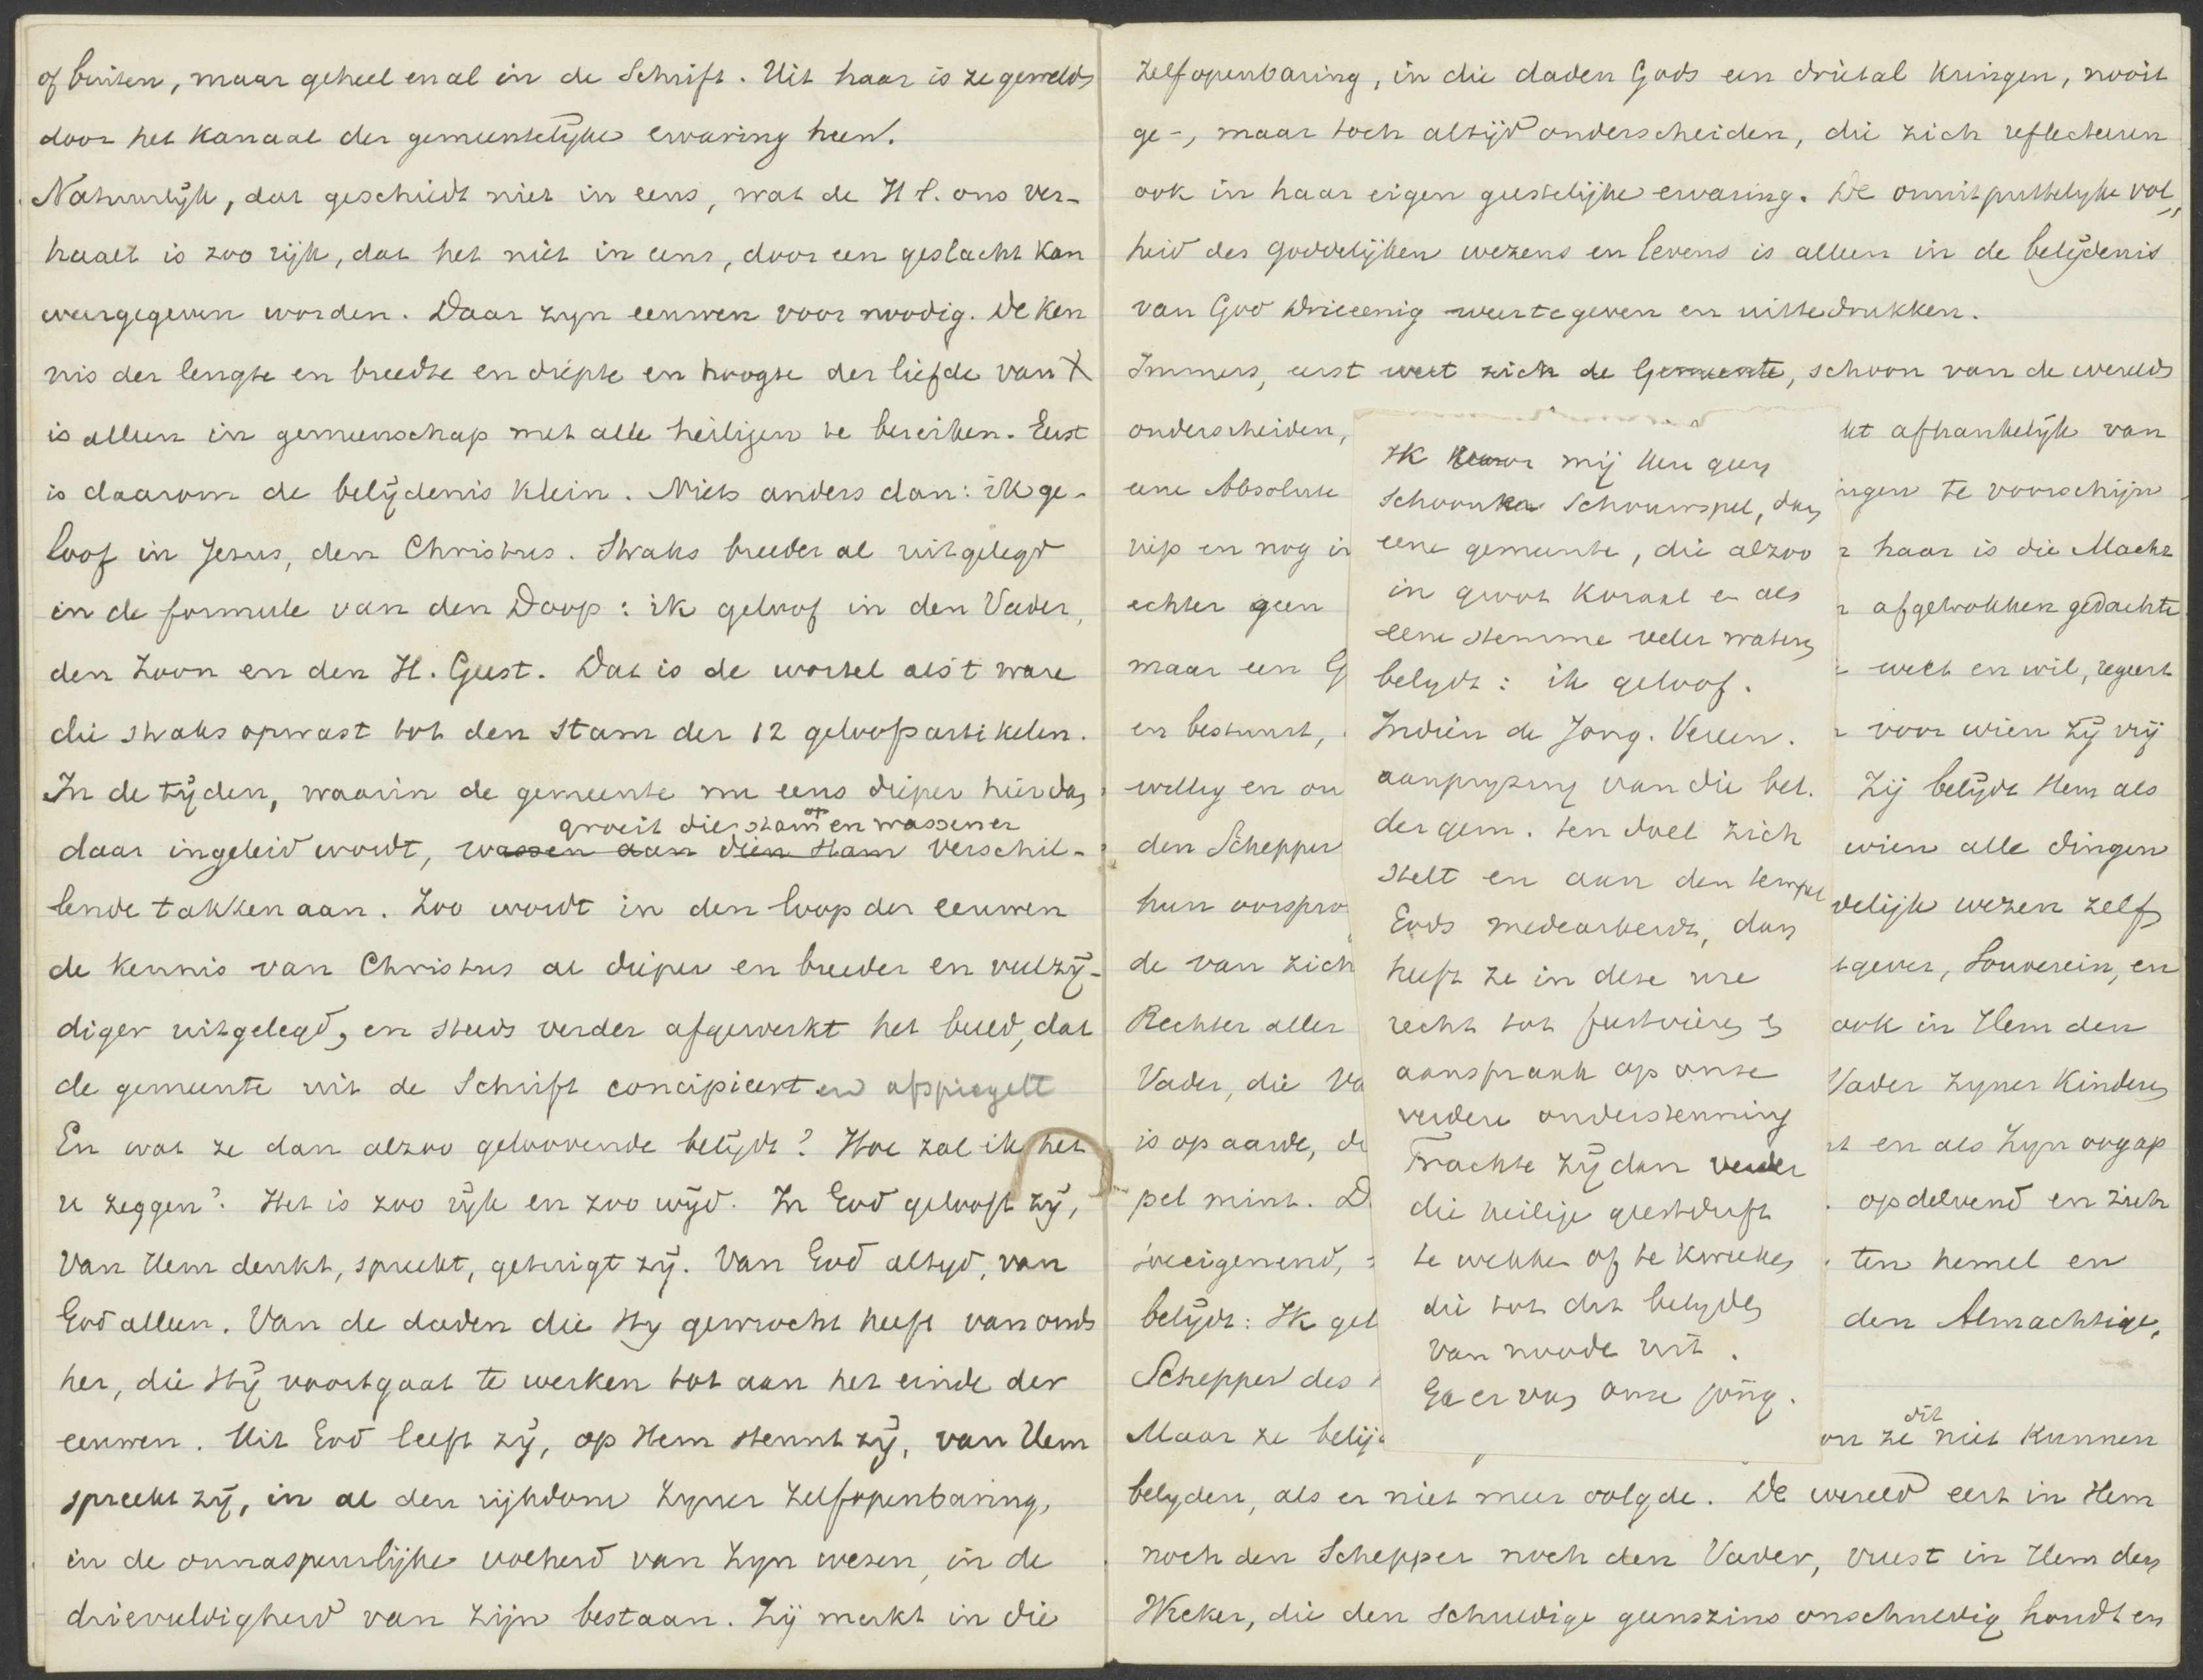 of buiten, maar geheel en al in de Schrift. Uit haar is ze geweld
door het kanaal der gemeentelijke ervaring heen.
Natuurlijk, dat geschiedt niet in eens, wat de H S. ons ver-
haalt is zoo rijk, dat het niet in eens, door een geslacht kan
weergegeven worden. Daar zyn eeuwen voor noodig. De ken
nis der lengte en breedte en diepte en hoogte der liefde van X
is alleen in gemeenschap met alle heiligen te bereiken. Eerst
is daarom de belijdenis klein. Niets anders dan: ik ge-
loof in Jezus, den Christus. Straks breeder al uitgelegd
in de formule van den Doop: ik geloof in den Vader,
den Zoon en den H. Geest. Dat is de wortel als 't ware
die straks opwast tot den stam der 12 geloofsartikelen.
In de tijden, waarin de gemeente nu eens dieper hier dan
groeit die stam op en wassen er
daar ingeleid wordt, wassen aan dien stam verschil-
lende takken aan. Zoo wordt in den loop der eeuwen
de kennis van Christus al dieper en breeder en veelzij-
diger uitgelegd, en steeds verder afgewerkt het beeld, dat
de gemeente uit de Schrift concipieert en afspiegelt
En wat ze dan alzoo geloovende belijdt? Hoe zal ik het
u zeggen? Het is zoo rijk en zoo wijd. In God gelooft zij,
Van Hem denkt, spreekt, getuigt zij. Van God altyd, van
God alleen. Van de daden die Hy gewrocht heeft van ouds
her, die Hij voortgaat te werken tot aan het einde der
eeuwen. Uit God leeft zij, op Hem steunt zij, van Hem
spreekt zij, in al den rijkdom Zyner Zelfopenbaring,
in de onnaspeurlijke volheid van Zyn wezen, in de
drievuldigheid van zijn bestaan. Zij merkt in die
Zelfopenbaring, in die daden Gods een drietal kringen, nooit
ge-, maar toch altijd onderscheiden, die zich reflecteeren
ook in haar eigen geestelijke ervaring. De onuitputtelyke vol
heid des goddelijken wezens en levens is alleen in de belijdenis
van God Drieeenig weertegeven en uittedrukken.
Immers, eerst weet zich de Gemeente, schoon van de wereld
onderscheiden,
eene Absolute
riep en nog in
echter geen
maar een G
en bestuurt,
willig en on
den Schepper
hun oorspro
de van zich
Rechter aller
Vader, die Va
is op aarde, d
pel mint. D
toeeigenend,
belijdt: Ik gel
Schepper des
Maar ze belij
Ik mij geen
schooner schouwspel, dan
eene gemeente, die alzoo
in groot koraal en als
eene stemme veler wateren
belydt: ik geloof.
Indien de Jong. Vereen.
aanpryzing van die bel.
der gem. ten doel zich
stelt en aan den tempel
Gods medearbeidt, dan
heeft ze in deze ure
recht tot en
aanspraak op onze
verdere ondersteuning
Trachte zij dan verder
die heilige geestdrift
te wekken of te kweeken
die tot dit belyden
van noode is.
En er van onze jong.
kt afhankelijk van
ingen te voorschijn
r haar is die Macht
n afgetrokken gedachte
weet en wil, regeert
r voor wien zij vrij
Zij belijdt Hem als
wien alle dingen
delijk wezen zelf
tgever, Souverein, en
ook in Hem den
Vader zyner kinderen
it en als Zyn oogap
opdelvend en zich
ten hemel en
den Almachtige,
dit
on ze niet kunnen
belyden, als er niet meer volgde. De wereld eert in Hem
noch den Schepper noch den Vader, vreest in Hem den
Wreker, die den schuldige geenszins onschuldig houdt en